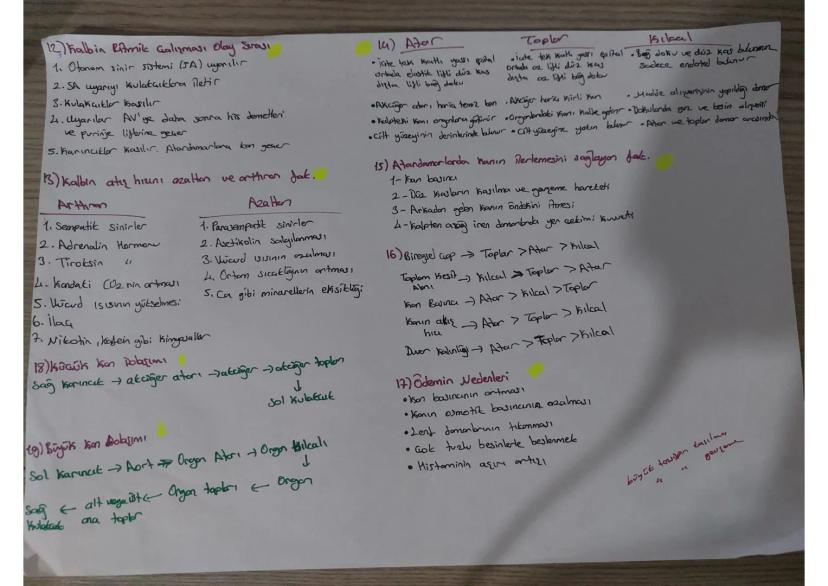 12) Kalbin Ritmik Çalışması Olay Sırası
1. Otonom sinir sistemi (SA) uyarılır
2. SA uyarıyı kulakçıklara iletir
3. Kulakçıklar kasılır
4. Uyarılar AV'ye daha sonra his demetleri
ve purinje liflerine geçer
5. Karıncıklar kasılır. Atardamarlara kan geçer
13) Kalbin atış hızını azaltan ve arttıran fak.
Arttıran
1. Sempatik sinirler
2. Adrenalin Hormonu
3. Tiroksin "
4. Kandaki CO2 nin artması
5. Vücud ısısının yükselmesi
6. İlaç
7. Nikotin, kafein gibi kimyasallar
Azaltan
1. Parasempatik sinirler
2. Asetilkolin salgılanması
3. Vücud ısısının azalması
4. Ortam sıcaklığının artması
5. Ca gibi minarellerin eksikliği
18) Küçük Kan Dolaşımı
Sağ karıncık → akciğer atarı → akciğer → akciğer topları
↓
Sol kulakcık
19) Büyük Kan Dolaşımı
Sol karıncık → Aort → Organ Atarı → Organ kılcalı
↓
Sağ ← alt veya üst ← Organ topları ← Organ
kulakcık ana toplar
14) Atar
• içte tek katlı yassı epitel
ortada elastik lifli düz kas
dışta lifli bağ doku
• Akciğer atarı hariç temiz kan
• Kalpteki kanı organlara götürür
• Cilt yüzeyinin derinlerinde bulunur
Toplar
• içte tek katlı yassı epitel
ortada az lifli düz kas
dışta az lifli bağ doku
• Akciğer hariç kirli kan
• Organlardaki kanı kalbe getirir
• Cilt yüzeyine yakın bulunur
Kılcal
• Bağ doku ve düz kas bulunmaz
sadece endotel bulunur
• Madde alışverişinin yapıldığı damar
• Dokularda gaz ve besin alışverişi
• Atar ve toplar damar arasında
15) Atardamarlarda kanın ilerlemesini sağlayan fak.
1- Kan basıncı
2- Düz kasların kasılma ve gevşeme hareketi
3- Arkadan gelen kanın öndekini itmesi
4- Kalpten aşağı inen damarlarda yer çekimi kuvveti
16) Bireysel çap → Toplar > Atar > Kılcal
Toplam Kesit → Kılcal > Toplar > Atar
Alanı
Kan Basıncı → Atar > Kılcal > Toplar
Kanın akış → Atar > Toplar > Kılcal
hızı
Duvar Kalınlığı → Atar > Toplar > Kılcal
17) Ödemin Nedenleri
• Kan basıncının artması
• Kanın osmotik basıncının azalması
• Lenf damarlarının tıkanması
• Çok tuzlu besinlerle beslenmek
• Histaminin aşırı artışı
büyük tavşan kasılma
" " gevşeme